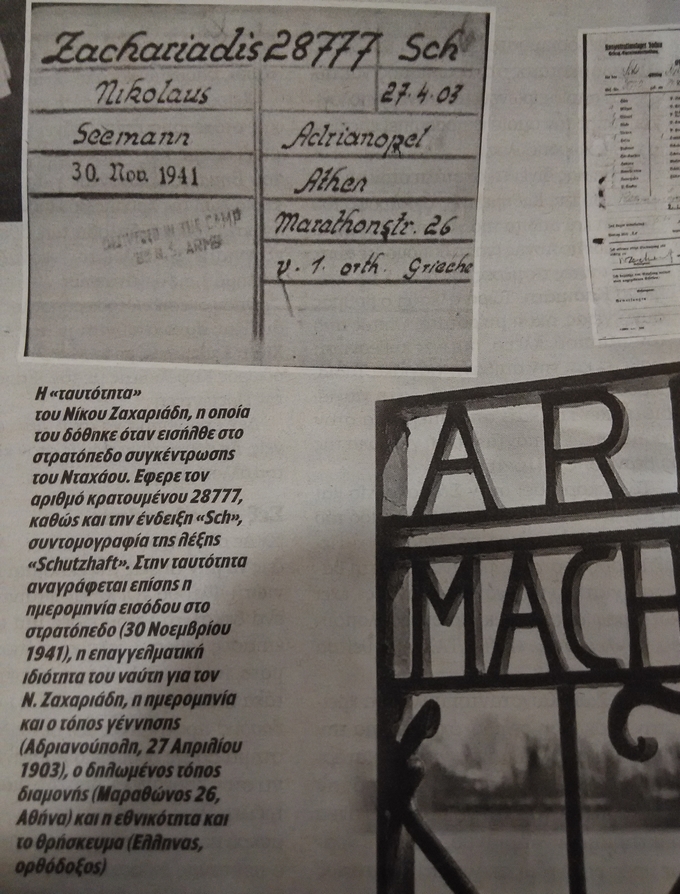 Zachariadis 28777 Sch
Nikolaus
27.4.03
Seemann
Adrianopel
30. Nov. 1941
Athen
Marathonstr. 26
v. 1. orth. Grieche
IN THE CAMP
ARMY
Η «ταυτότητα»
του Νίκου Ζαχαριάδη, η οποία
του δόθηκε όταν εισήλθε στο
στρατόπεδο συγκέντρωσης
του Νταχάου. Εφερε τον
αριθμό κρατουμένου 28777,
καθώς και την ένδειξη «Sch»,
συντομογραφία της λέξης
«Schutzhaft». Στην ταυτότητα
αναγράφεται επίσης η
ημερομηνία εισόδου στο
στρατόπεδο (30 Νοεμβρίου
1941), η επαγγελματική
ιδιότητα του ναύτη για τον
Ν. Ζαχαριάδη, η ημερομηνία
και ο τόπος γέννησης
(Αδριανούπολη, 27 Απριλίου
1903), ο δηλωμένος τόπος
διαμονής (Μαραθώνος 26,
Αθήνα) και η εθνικότητα και
το θρήσκευμα (Ελληνας,
ορθόδοξος)
AR
MACH